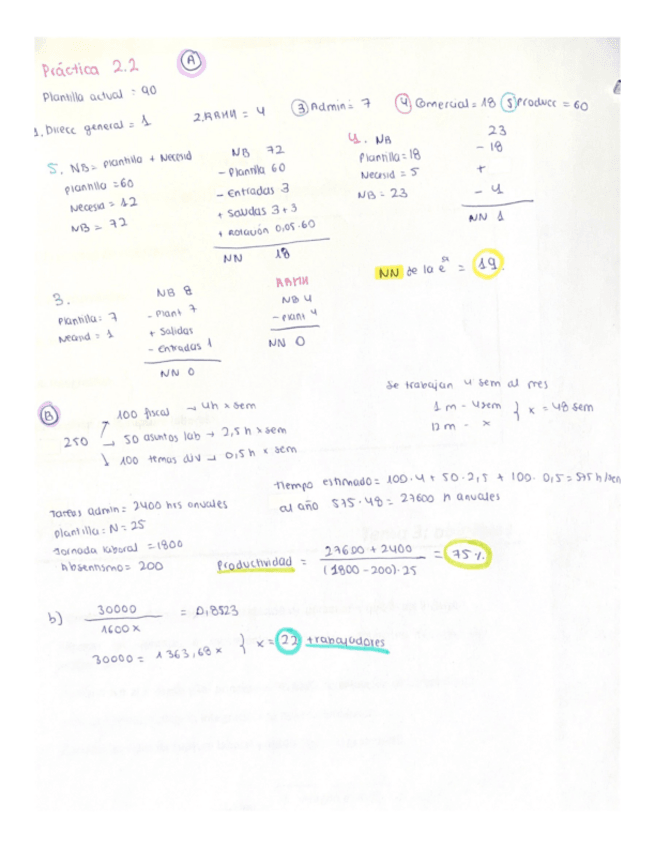 Práctica 2.2 A
Plantilla actual = 90
1. Direcc general = 1 2. RRHH = 4 3 Admin = 7 4 Comercial = 18 5 Producc = 60
5. NB = plantilla + Necesid
plantilla = 60
Necesid = 12
NB = 72
NB 72
- Plantilla 60
- Entradas 3
+ Salidas 3+3
+ Rotación 0,05·60
NN 18
4. NB
Plantilla = 18
Necesid = 5
NB = 23
23
- 18
+
- 4
NN 1
NN de la esa = 19.
3.
Plantilla: 7
Necesid = 1
NB 8
- Plant 7
+ Salidas
- Entradas 1
NN 0
RRHH
NB 4
- Plant 4
NN 0
B
250
100 fiscal → 4h x sem
→ 50 asuntos lab → 2,5 h x sem
100 temas div → 0,5 h x sem
Se trabajan 4 sem al mes
1 m - 4 sem
12 m - x
} x = 48 sem
Tiempo estimado = 100·4 + 50·2,5 + 100·0,5 = 575 h/sem
al año 575·48 = 27600 h anuales
Tareas admin = 2400 hrs anuales
plantilla: N = 25
Jornada laboral = 1800
Absentismo = 200
Productividad = 27600 + 2400 / (1800 - 200)·25 = 75%
b) 30000 / 1600x = 0,8523
30000 = 1363,68x } x = 22 trabajadores